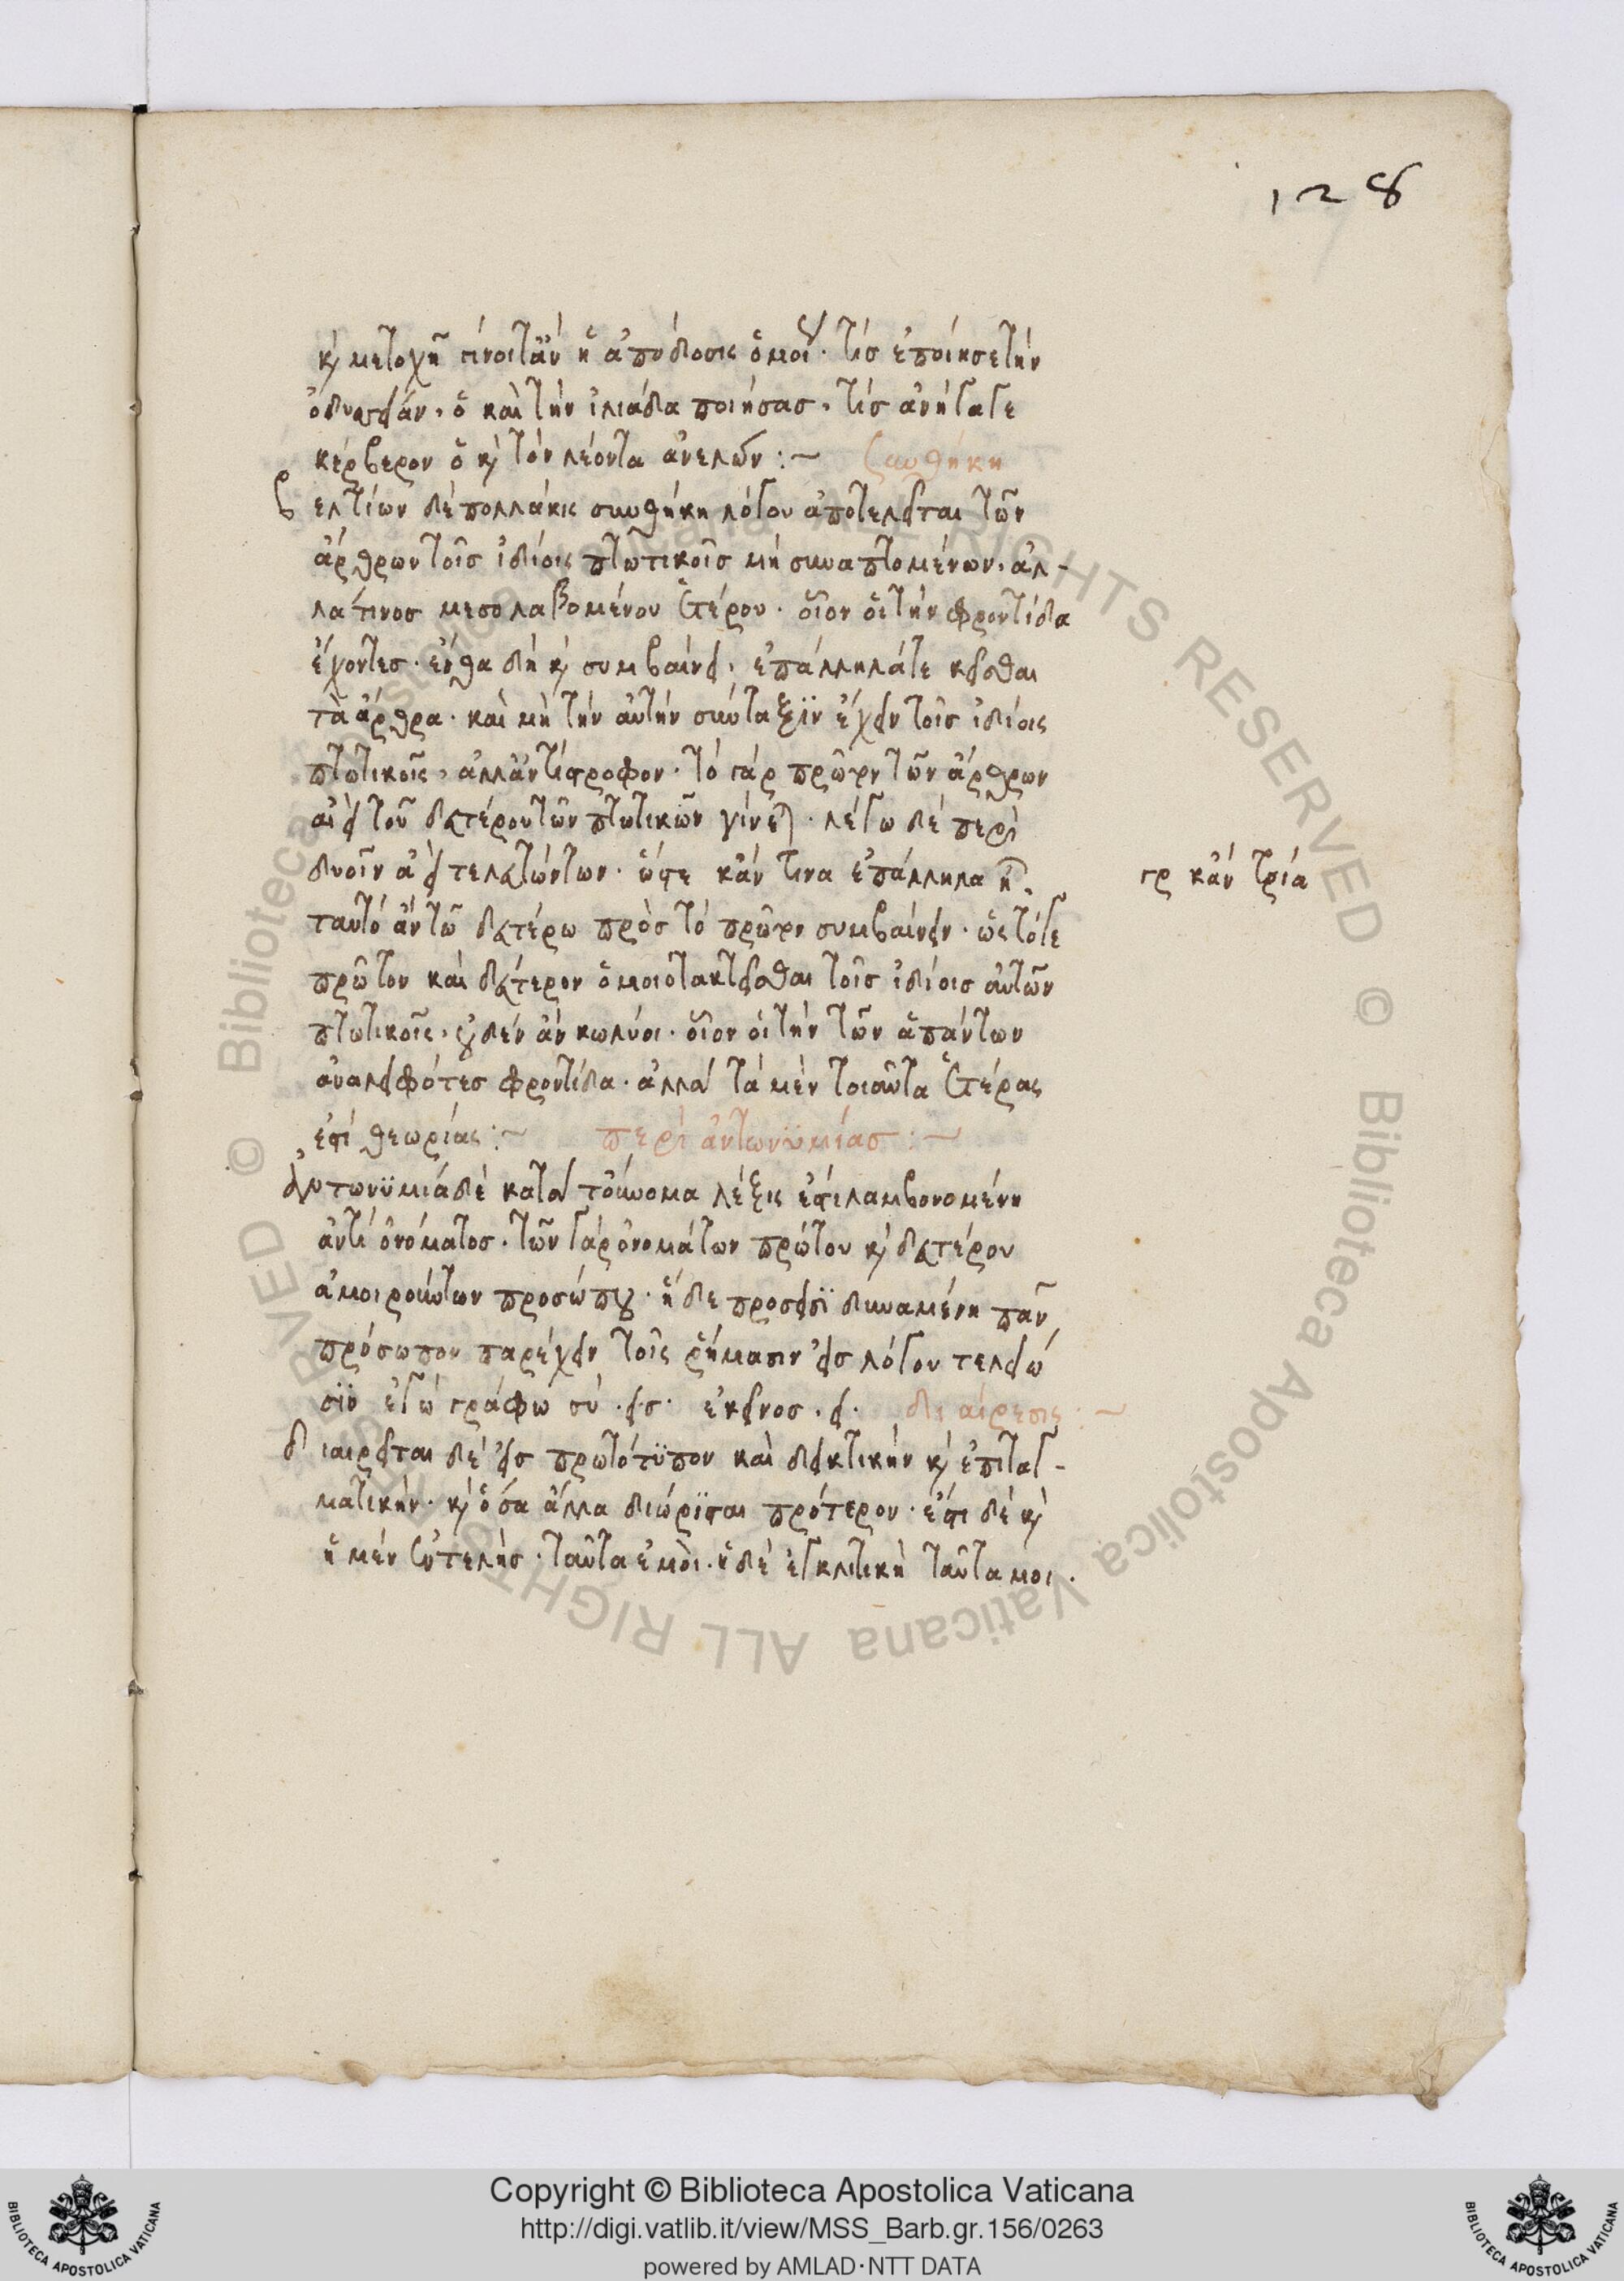 128
καὶ μετοχῇ γίνοιτ' ἂν ἡ ἀπόδοσις ὁμοῦ. τίς ἐποίησε τὴν
ὀδυσσείαν. ὁ καὶ τὴν ἰλιάδα ποιήσας. τίς ἀνήγαγε
κέρβερον ὁ καὶ τὸν λέοντα ἀνελών :~ συνθήκη
βελτίων δὲ πολλάκις συνθήκη λόγου ἀποτελεῖται τῶν
ἄρθρων τοῖς ἰδίοις πτωτικοῖς μὴ συναπτομένων. ἀλ-
λά τινος μεσολαβομένου ἑτέρου. οἷον οἱ τὴν φροντίδα
ἔχοντες. ἔνθα δὴ καὶ συμβαίνει. ἐπάλληλά τε κεῖσθαι
τὰ ἄρθρα. καὶ μὴ τὴν αὐτὴν σύνταξϊν ἔχειν τοῖς ἰδίοις
πτωτικοῖς, ἀλλ' ἀντίστροφον. τὸ γάρ πρῶτον τῶν ἄρθρων
τοῦ δευτέρου τῶν πτωτικῶν γίνεται. λέγω δὲ περὶ
δυοῖν ὥστε κἄν τινα ἐπάλληλα ᾖ.
γρ κἂν τρία
ταὐτὸ ἂν τῶ δευτέρω πρὸς τὸ πρῶτον συμβαίνειν. ὡς τό τε
πρῶτον καὶ δεύτερον ὁμοιοτακτεῖσθαι τοῖς ἰδίοις αὐτῶν
πτωτικοῖς, οὐδὲν ἂν κωλύοι. οἷον οἱ τὴν τῶν ἁπάντων
ἀναλειφότες φροντίδα. ἀλλὰ τὰ μὲν τοιαῦτα ἑτέρας
ἐστὶ θεωρίας :~ περὶ ἀντωνϋμίας :~
ἀντωνϋμία δὲ κατὰ τοὔνομα λέξις ἐπιλαμβονομένη
ἀντὶ ὀνόματος. τῶν γὰρ ὀνομάτων πρώτου καὶ δευτέρου
ἀμοιρούντων προσώπου. ἡ δε δυναμένη πᾶν
πρόσωπον παρέχειν τοῖς ῥήμασιν εἰς λόγου τελείω
σϊν ἐγὼ γράφω σὺ .εις. ἐκεῖνος .ει. διαίρεσις :~
διαιρεῖται δὲ εἰς πρωτότϋπον καὶ δεικτικὴν καὶ ἐπιταγ-
ματικήν. καὶ ὅσα ἄλλα διώρϊσται πρότερον. ἔτι δὲ καὶ
ἡ μὲν εὐτελὴς. ταῦτα ἐμοὶ. ἡ δὲ ἐγκλιτικὴ ταῦτα μοι.
Copyright © Biblioteca Apostolica Vaticana
http://digi.vatlib.it/view/MSS_Barb.gr.156/0263
powered by AMLAD·NTT DATA
BIBLIOTECA APOSTOLICA VATICANA
BIBLIOTECA APOSTOLICA VATICANA
© Biblioteca Apostolica Vaticana ALL RIGHTS RESERVED
© Biblioteca Apostolica Vaticana ALL RIGHTS RESERVED